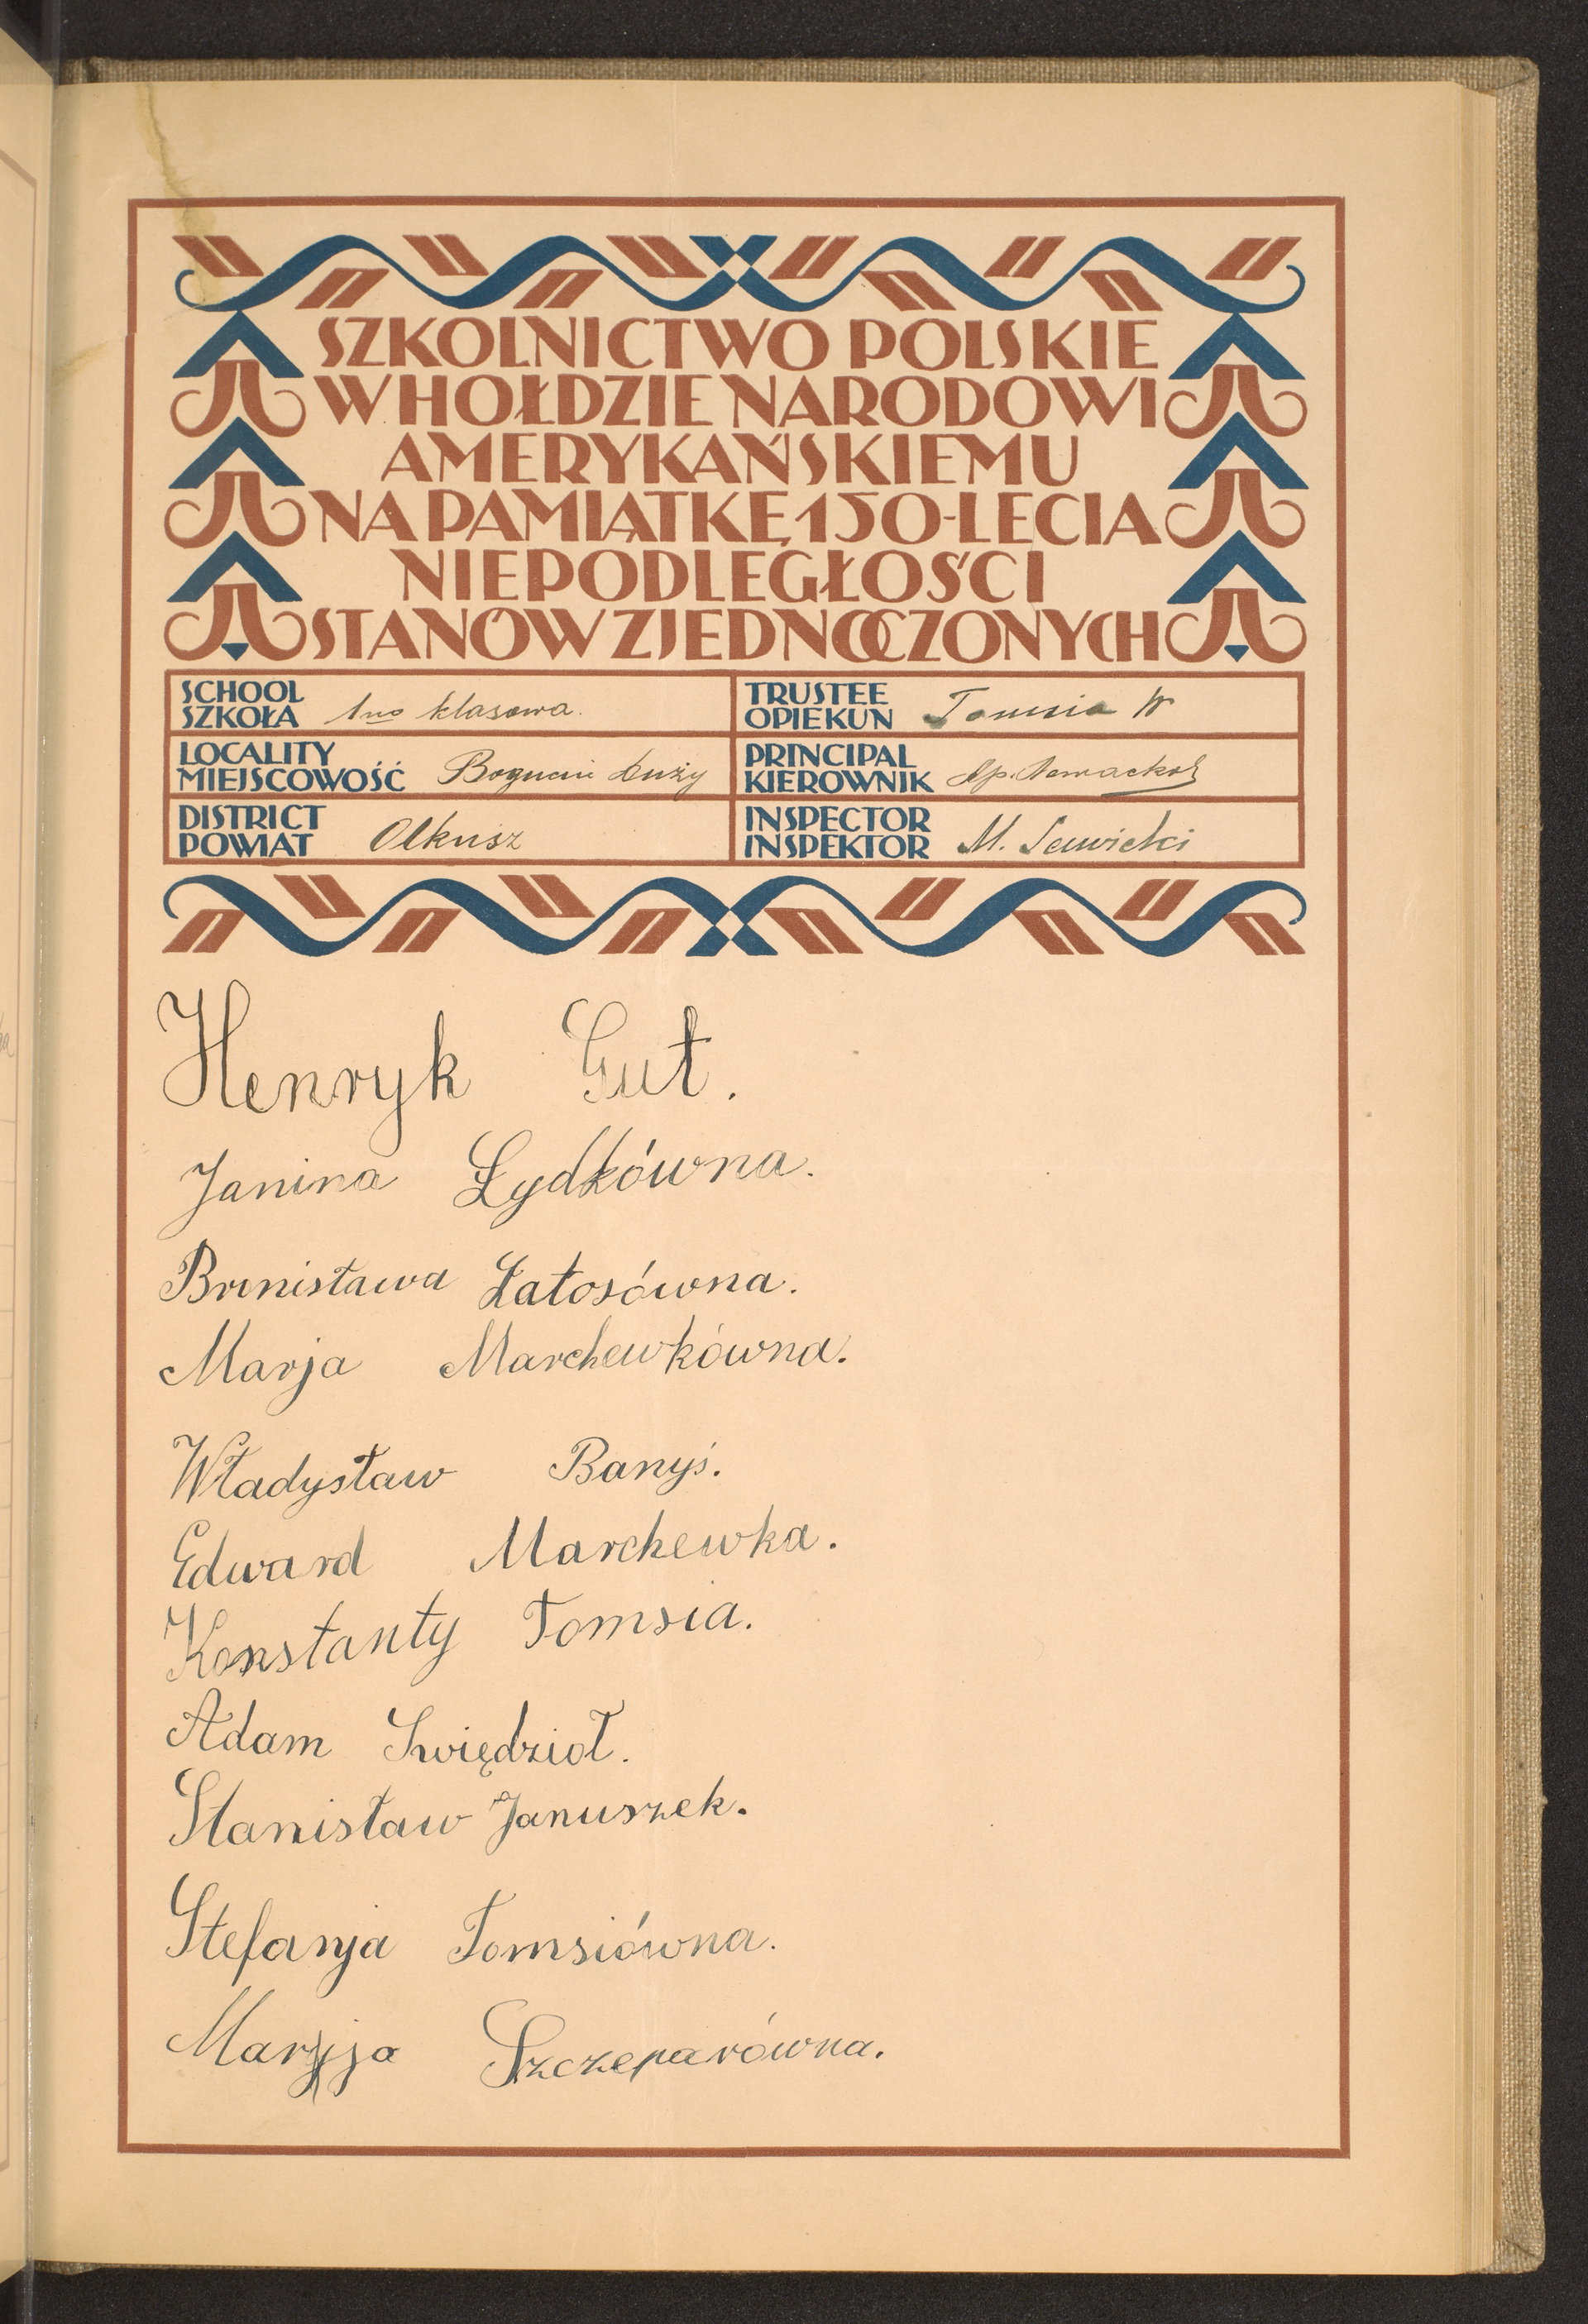 SZKOLNICTWO POLSKIE
W HOŁDZIE NARODOWI
AMERYKAŃSKIEMU
NA PAMIĄTKĘ 150-LECIA
NIEPODLEGŁOŚCI
STANÓW ZJEDNOCZONYCH
SCHOOL
SZKOŁA 1no klasowa.
TRUSTEE
OPIEKUN Tomsia W
LOCALITY
MIEJSCOWOŚĆ Bogucin Duży
PRINCIPAL
KIEROWNIK
DISTRICT
POWIAT Olkusz
INSPECTOR
INSPEKTOR M.
Henryk Gut.
Janina Łydkówna.
Bronisława Łatosówna.
Marja Marchewkówna.
Władysław Banyś.
Edward Marchewka.
Konstanty Tomsia.
Adam Swiędzioł.
Stanisław Januszek.
Stefanja Tomsiówna.
Marja Szczeparówna.